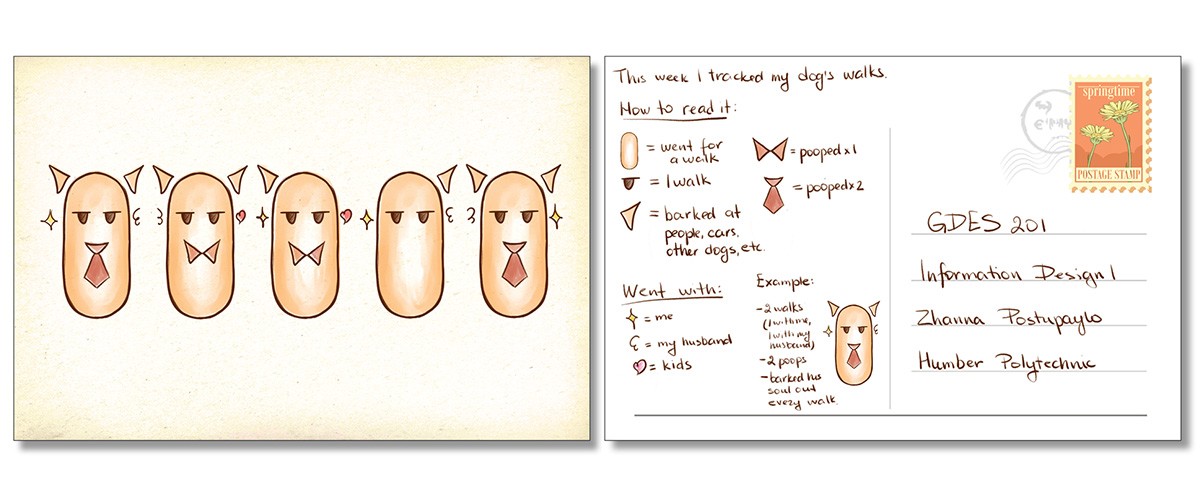 This week I tracked my dog's walks.
How to read it:
= went for
a walk
= 1 walk
= barked at
people, cars,
other dogs, etc.
= pooped x 1
= pooped x 2
Went with:
= me
= my husband
= kids
Example:
- 2 walks
(1 with me,
1 with my
husband)
- 2 poops
- barked his
soul out
every walk.
springtime
POSTAGE STAMP
GDES 201
Information Design 1
Zhanna Postupaylo
Humber Polytechnic